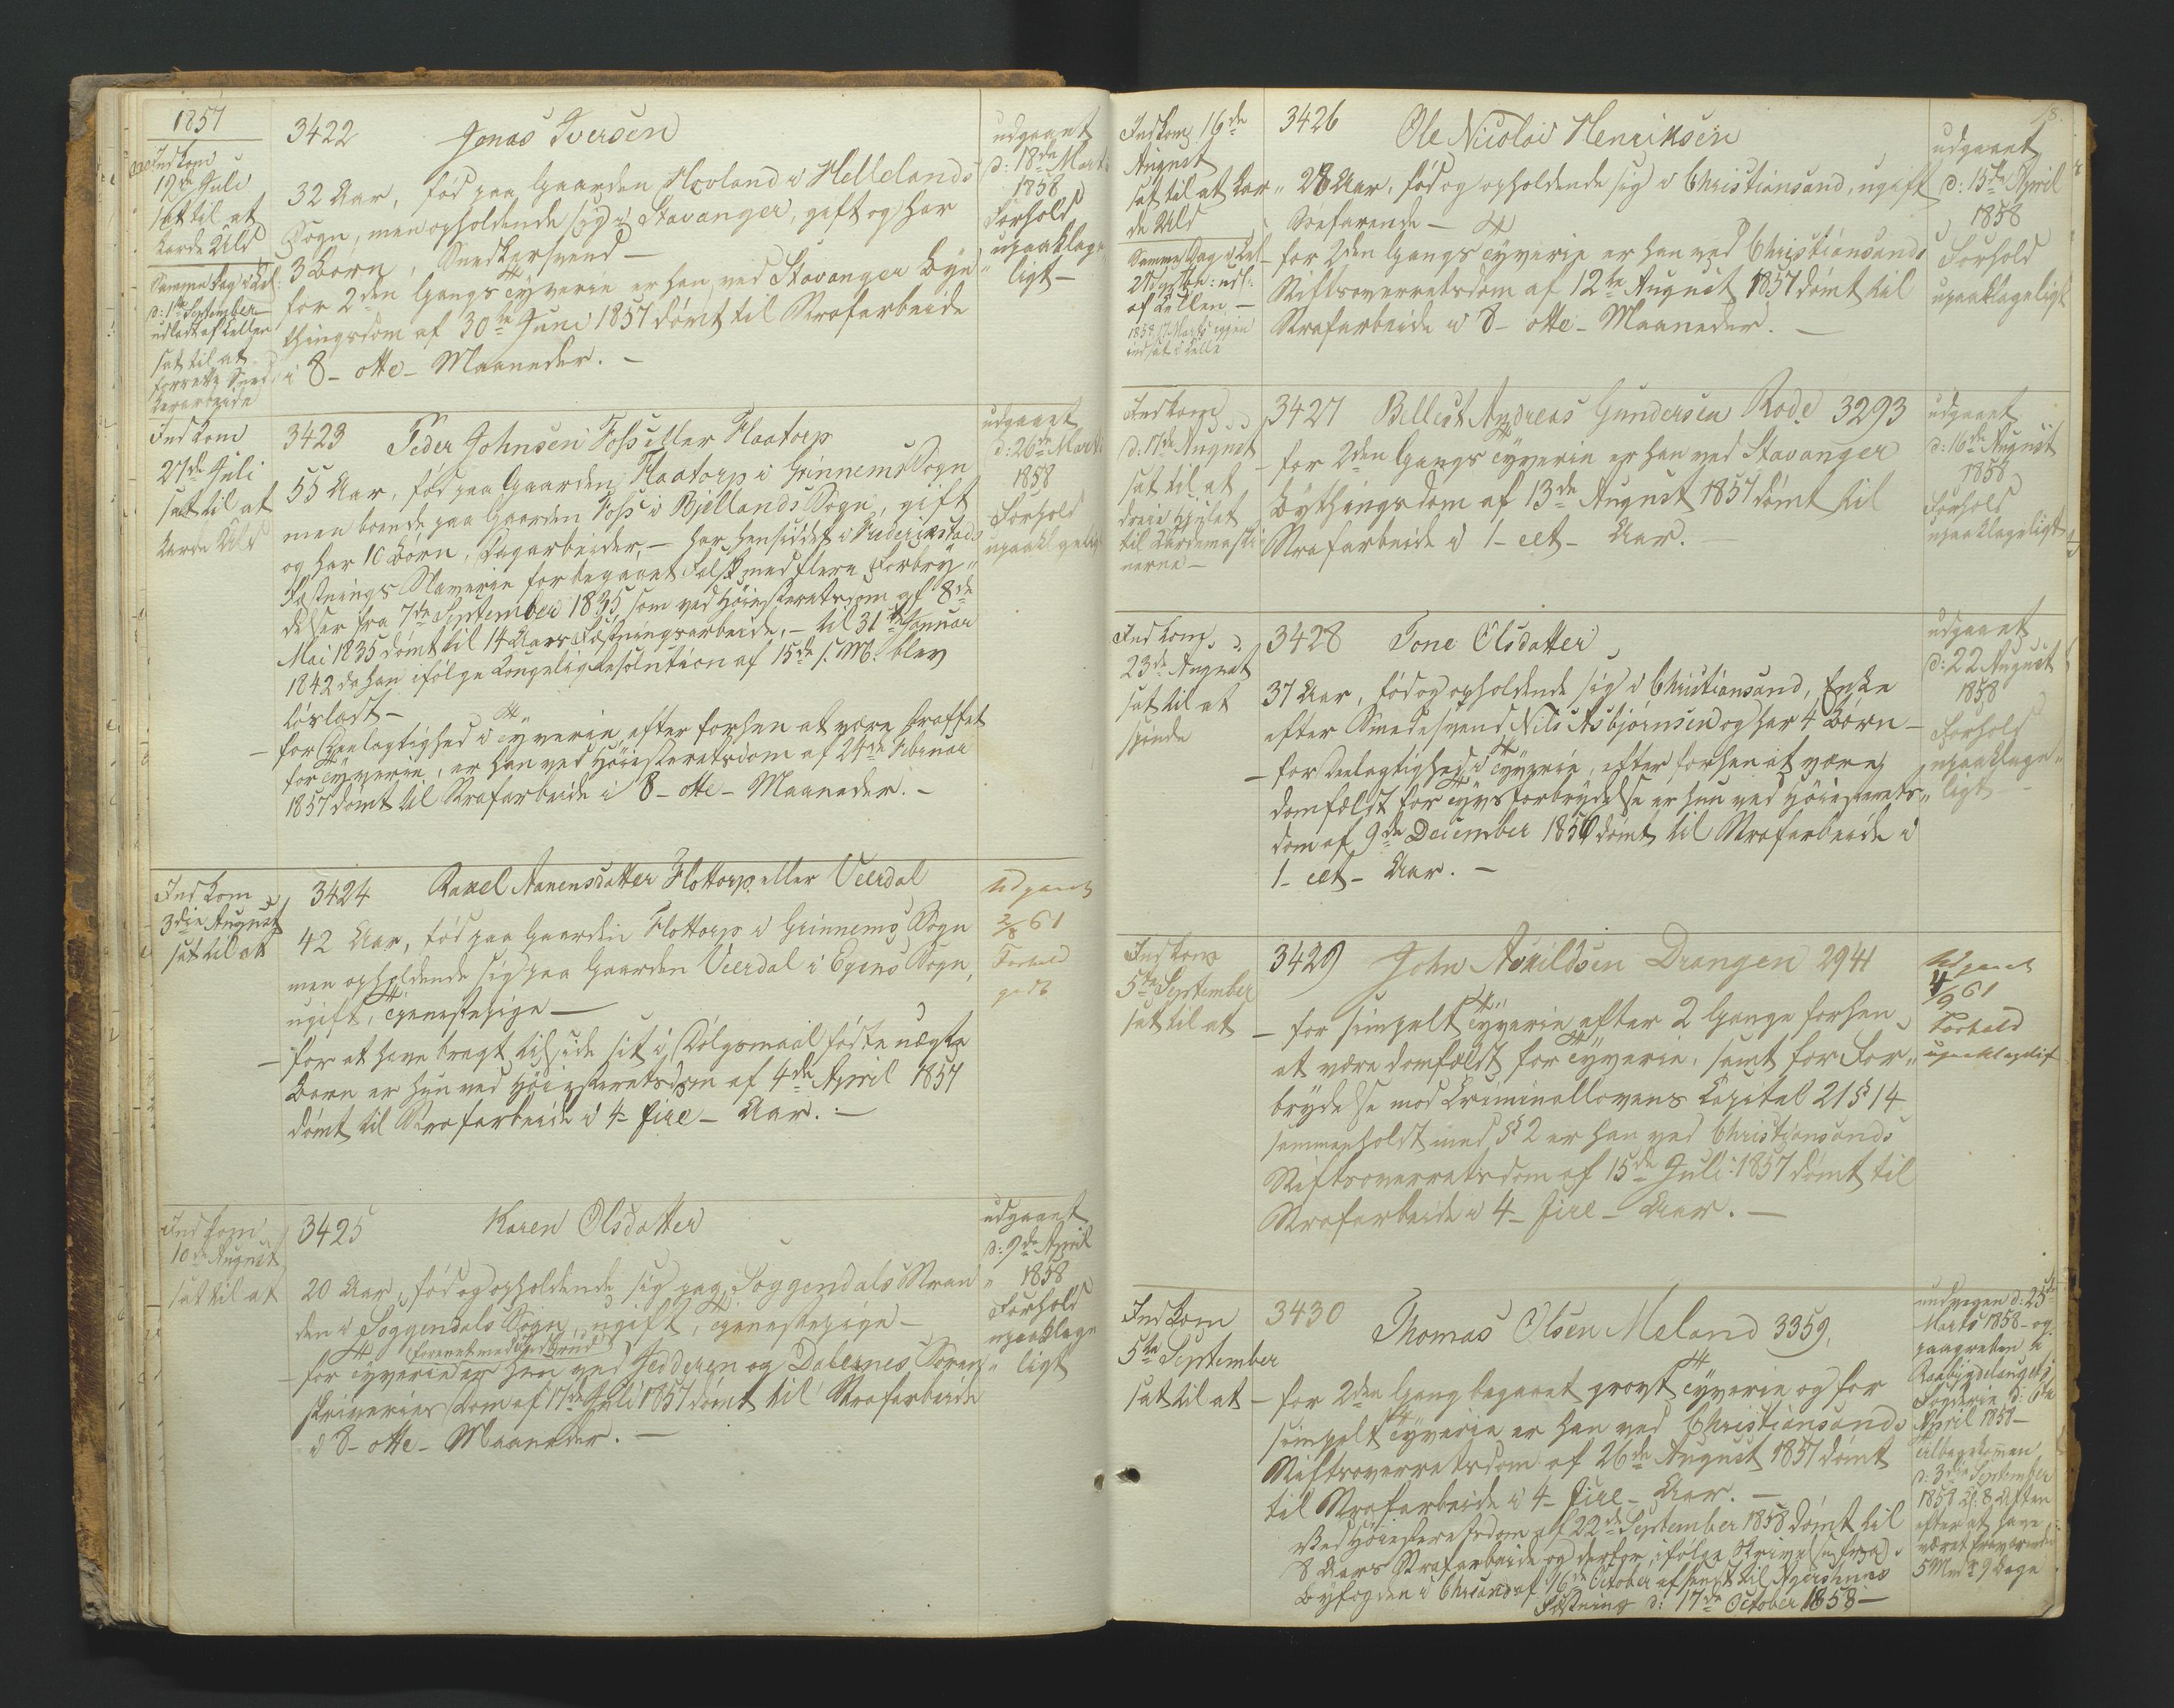 1857
Indkom
19de Juli
sat til at
karde Uld
Samme Dag i Cel
d: 1ste September
udladt af Cellen
sat til at
forrette Sned
kerarbeide
3422 Jonas Iversen
32 Aar, fød paa Gaarden Hovland i Hellelands
Sogn, men opholdende sig i Stavanger, gift og har
3 Børn, Snedkersvend —
for 2den Gangs Tyverie er han ved Stavanger Bye„
thingsdom af 30te Juni 1857 dømt til Strafarbeide
i 8 – otte – Maaneder. —
udgaaet
d: 18de Marts
1858
Forhold
upaaklage
ligt —
Indkom
27de Juli
sat til at
karde Uld
3423 Peder Johnsen Foss eller Flaatorp
55 Aar, fød paa Gaarden Flaatorp i Grinnems Sogn
men boende paa Gaarden Foss i Bjellands Sogn, gift
og har 10 Børn, Dagarbeider, – har hensiddet i Frederikstads
Fæstnings Slaverie for begaaet Falsk med flere Forbry„
delser fra 7de September 1835 som ved Høiesteretsdom af 8de
Mai 1835 dømt til 14 Aars Fæstningsarbeide, – til 31te Januar
1842 da han ifølge Kongelig Resolution af 15de s. M. blev
løsladt —
— for Deelagtighed i Tyverie efter forhen at være straffet
for Tyverie, er han ved Høiesteretsdom af 24de Februar
1857 dømt til Strafarbeide i 8 – otte – Maaneder. —
udgaaet
d: 26de Marts
1858
Forhold
upaaklagelig
Indkom
3die August
sat til at
3424 Rakel Aanensdatter Flottorp eller Veerdal
42 Aar, fød paa Gaarden Flottorp i Grinnems Sogn
men opholdende sig paa Gaarden Veerdal i Egens Sogn,
ugift, Tjenestepige —
— for at have bragt tilside sit i Dølgsmaal fødte uægte
Barn er hun ved Høiesteretsdom af 4de April 1857
dømt til Strafarbeide i 4 – fire – Aar. —
Udgaaet
2/8 61
Forhold
godt
Indkom
10de August
sat til at
3425 Karen Olsdatter
20 Aar, fød og opholdende sig paa Soggendals Stran
den i Soggendals Sogn, ugift, Tjenestepige —
forenet med Indbrud
— for Tyverie er hun ved Jedderen og Dalernes Soren
skriveries Dom af 17de Juli 1857 dømt til Strafarbeide
i 8 – otte – Maaneder. —
udgaaet
d: 9de April
1858
Forhold
upaaklage
ligt
18.
Indkom 16de
August
sat til at kar„
de Uld
Samme Dag i Cel–
27 Septbr: udl:
af Cellen —
1858 17 Marts igjen
indsat i Celle
3426 Ole Nicolai Henriksen
28 Aar, fød og opholdende sig i Christiansand, ugift
Søefarende —
for 2den Gangs Tyverie er han ved Christiansands
Stiftsoverretsdom af 12te August 1857 dømt til
Strafarbeide i 8 – otte – Maaneder. —
udgaaet
d: 15de April
1858
Forhold
upaaklageligt
Indkom
d: 17de August
sat til at
dreie Hjulet
til Kardemaski
nerne —
3427 Bellest Andreas Gundersen Rode 3293
— for 2den Gangs Tyverie er han ved Stavanger
Bythingsdom af 13de August 1857 dømt til
Strafarbeide i 1 – eet – Aar. —
udgaaet
d: 16de August
1858
Forhold
upaaklageligt
Indkom
23de August
sat til at
spinde
3428 Tone Olsdatter
37 Aar, fød og opholdende sig i Christiansand, Enke
efter Smedesvend Nils Asbjørnsen og har 4 Børn —
— for Deelagtighed i Tyverie, efter forhen at være
domfældt for Tyvsforbrydelse er hun ved Høiesterets„
dom af 9de December 1856 dømt til Strafarbeide i
1 – eet – Aar. —
udgaaet
d: 22 August
1858
Forhold
upaaklage„
ligt —
Indkom
5te September
sat til at
3429 John Askildsen Drangen 2941
— for simpelt Tyverie efter 2 Gange forhen
at være domfældt for Tyverie, samt for For„
brydelse mod Criminallovens Capital 21 § 14
sammenholdt med § 2 er han ved Christiansands
Stiftsoverretsdom af 15de Juli 1857 dømt til
Strafarbeide i 4 – fire – Aar. —
Udgaaet
4/9 61
Forhold
upaaklagelig
Indkom
5te September
sat til at
3430 Thomas Olsen Meland 3359,
— for 2den Gang begaaet grovt Tyverie og for
simpelt Tyverie er han ved Christiansands
Stiftsoverretsdom af 26de August 1857 dømt
til Strafarbeide i 4 – fire – Aar. —
Ved Høiesteretsdom af 22de September 1858 dømt til
8 Aars Strafarbeide og derfor ifølge Skrivelse fra
Byfogden i Chrsand af 16de October afsendt til Agershuus
Fæstning d: 17de October 1858 —
undvegen d: 25de
Marts 1858 – og
paagreben i
Raabygdelaugets
Fogderie d: 6te
April 1858 —
tilbagekommen
d: 3die September
1858 Kl: 8 Aften
efter at have
været fraværende
5 Mdr 9 Dage